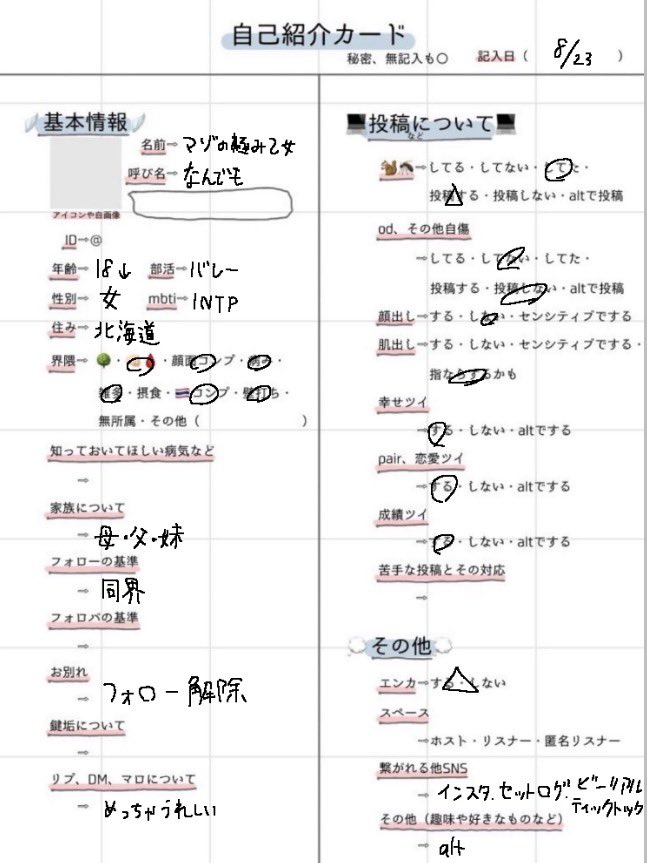 自己紹介カード
秘密、無記入も〇
記入日（ 8/23 ）
基本情報
名前⇨ マゾの極み乙女
呼び名⇨ なんでも
アイコンや自画像
ID⇨@
年齢⇨ 18↓ 部活⇨ バレー
性別⇨ 女 mbti⇨ INTP
住み⇨ 北海道
界隈⇨ 🌳・・顔面コンプ・病み・
雑多・摂食・コンプ・壁打ち・
無所属・その他（ ）
知っておいてほしい病気など
⇨
家族について
⇨ 母・父・妹
フォローの基準
⇨ 同界
フォロバの基準
⇨
お別れ
⇨ フォロー解除
鍵垢について
⇨
リプ、DM、マロについて
⇨ めっちゃうれしい
💻投稿について💻
など
🐿🦟⇨してる・してない・してた・
投稿する・投稿しない・altで投稿
od、その他自傷
⇨してる・してない・してた・
投稿する・投稿しない・altで投稿
顔出し⇨する・しない・センシティブでする
肌出し⇨する・しない・センシティブでする・
指ならするかも
幸せツイ
⇨する・しない・altでする
pair、恋愛ツイ
⇨する・しない・altでする
成績ツイ
⇨する・しない・altでする
苦手な投稿とその対応
⇨
💭その他💭
エンカ⇨する・しない
スペース
⇨ホスト・リスナー・匿名リスナー
繋がれる他SNS
⇨ インスタ.セットログ.ビーリアル
ティックトック
その他（趣味や好きなものなど）
⇨ alt